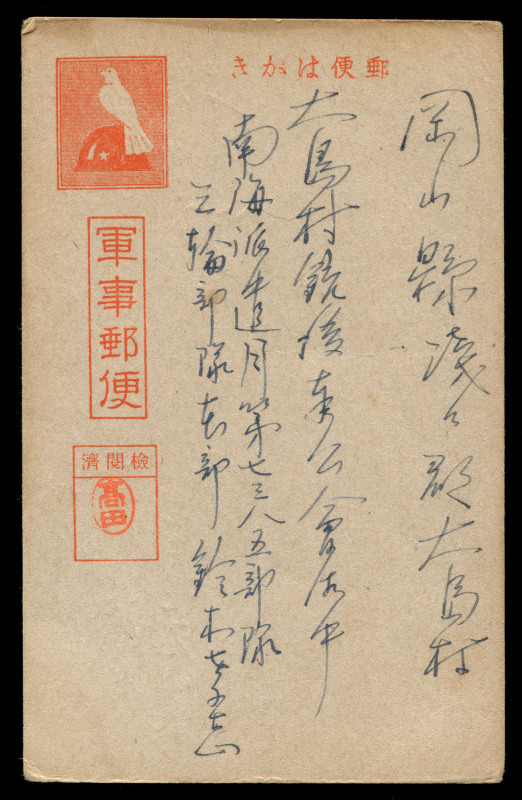 郵便はがき
岡山縣淺口郡大島村
大島村銃後奉公會御中
南海派遣月第七三八五部隊
三輪部隊本部 鈴木
軍事郵便
檢閱濟
髙田